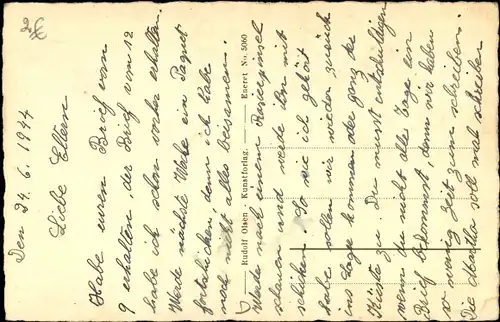 Den 24. 6. 1944
Liebe Eltern
Habe euren Brief vom
9 erhalten, der Brief vom 12
habe ich schon vorher erhalten.
Werde nächste Woche ein Paquet
fortschicken, denn ich habe
noch nicht alles beisammen.
Rudolf Olsen - Kunstforlag. Eneret No. 5060
Werde nach einem Rasierpinsel
schauen und werde ihn mit
schicken. So wie ich gehört
habe sollen wir wieder zurück
ins Lage kommen oder ganz bei
Küste zu. Du musst entschuldigen
wenn du nicht alle Tage ein
Brief bekommst, denn wir haben
so wenig Zeit zum schreiben.
Die Martha soll mal schreiben